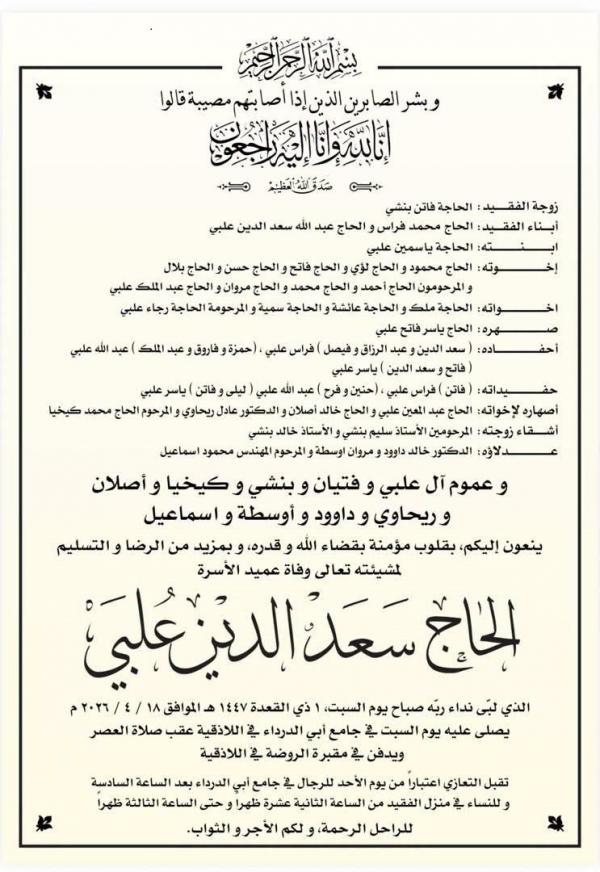 بسم الله الرحمن الرحيم
و بشر الصابرين الذين إذا أصابتهم مصيبة قالوا
إنا لله وإنا إليه راجعون
صدق الله العظيم
زوجة الفقيد : الحاجة فاتن بنشي
أبناء الفقيد : الحاج محمد فراس و الحاج عبد الله سعد الدين علبي
ابـنـتـه : الحاجة ياسمين علبي
إخـوتـه : الحاج محمود و الحاج لؤي و الحاج فاتح و الحاج حسن و الحاج بلال
و المرحومون الحاج أحمد و الحاج محمد و الحاج مروان و الحاج عبد الملك علبي
اخـواتـه : الحاجة ملك و الحاجة عائشة و الحاجة سمية و المرحومة الحاجة رجاء علبي
صـهـره : الحاج ياسر فاتح علبي
أحـفـاده : ( سعد الدين و عبد الرزاق و فيصل ) فراس علبي ، (حمزة و فاروق و عبد الملك ) عبد الله علبي
( فاتح و سعد الدين ) ياسر علبي
حفـيـداته : ( فاتن ) فراس علبي ، (حنين و فرح ) عبد الله علبي ( ليلى و فاتن ) ياسر علبي
أصهاره لإخواته : الحاج عبد المعين علبي و الحاج خالد أصلان و الدكتور عادل ريحاوي و المرحوم الحاج محمد كيخيا
أشـقاء زوجتـه : المرحومين الأستاذ سليم بنشي و الأستاذ خالد بنشي
عـدلاؤه : الدكتور خالد داوود و مروان اوسطة و المرحوم المهندس محمود اسماعيل
و عموم آل علبي و فتيان و بنشي و كيخيا و أصلان
و ريحاوي و داوود و أوسطة و اسماعيل
ينعون إليكم، بقلوب مؤمنة بقضاء الله و قدره، و بمزيد من الرضا و التسليم
لمشيئته تعالى وفاة عميد الأسرة
الحاج سعد الدين علبي
الذي لبّى نداء ربّه صباح يوم السبت، ١ ذي القعدة ١٤٤٧ هـ الموافق ١٨ / ٤ / ٢٠٢٦ م
يصلى عليه يوم السبت في جامع أبي الدرداء في اللاذقية عقب صلاة العصر
ويدفن في مقبرة الروضة في اللاذقية
تقبل التعازي اعتباراً من يوم الأحد للرجال في جامع أبي الدرداء بعد الساعة السادسة
و للنساء في منزل الفقيد من الساعة الثانية عشرة ظهراً و حتى الساعة الثالثة ظهراً
للراحل الرحمة، و لكم الأجر و الثواب.